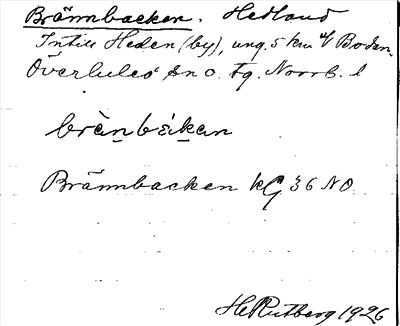 Brännbacken. Hedland
Intill Heden (by), ung. 5 km Boden,
Överluleå Sn o. tg. Norrb. l
brànbákan
Brännbacken kG 36 NO
H. Rutberg 1926